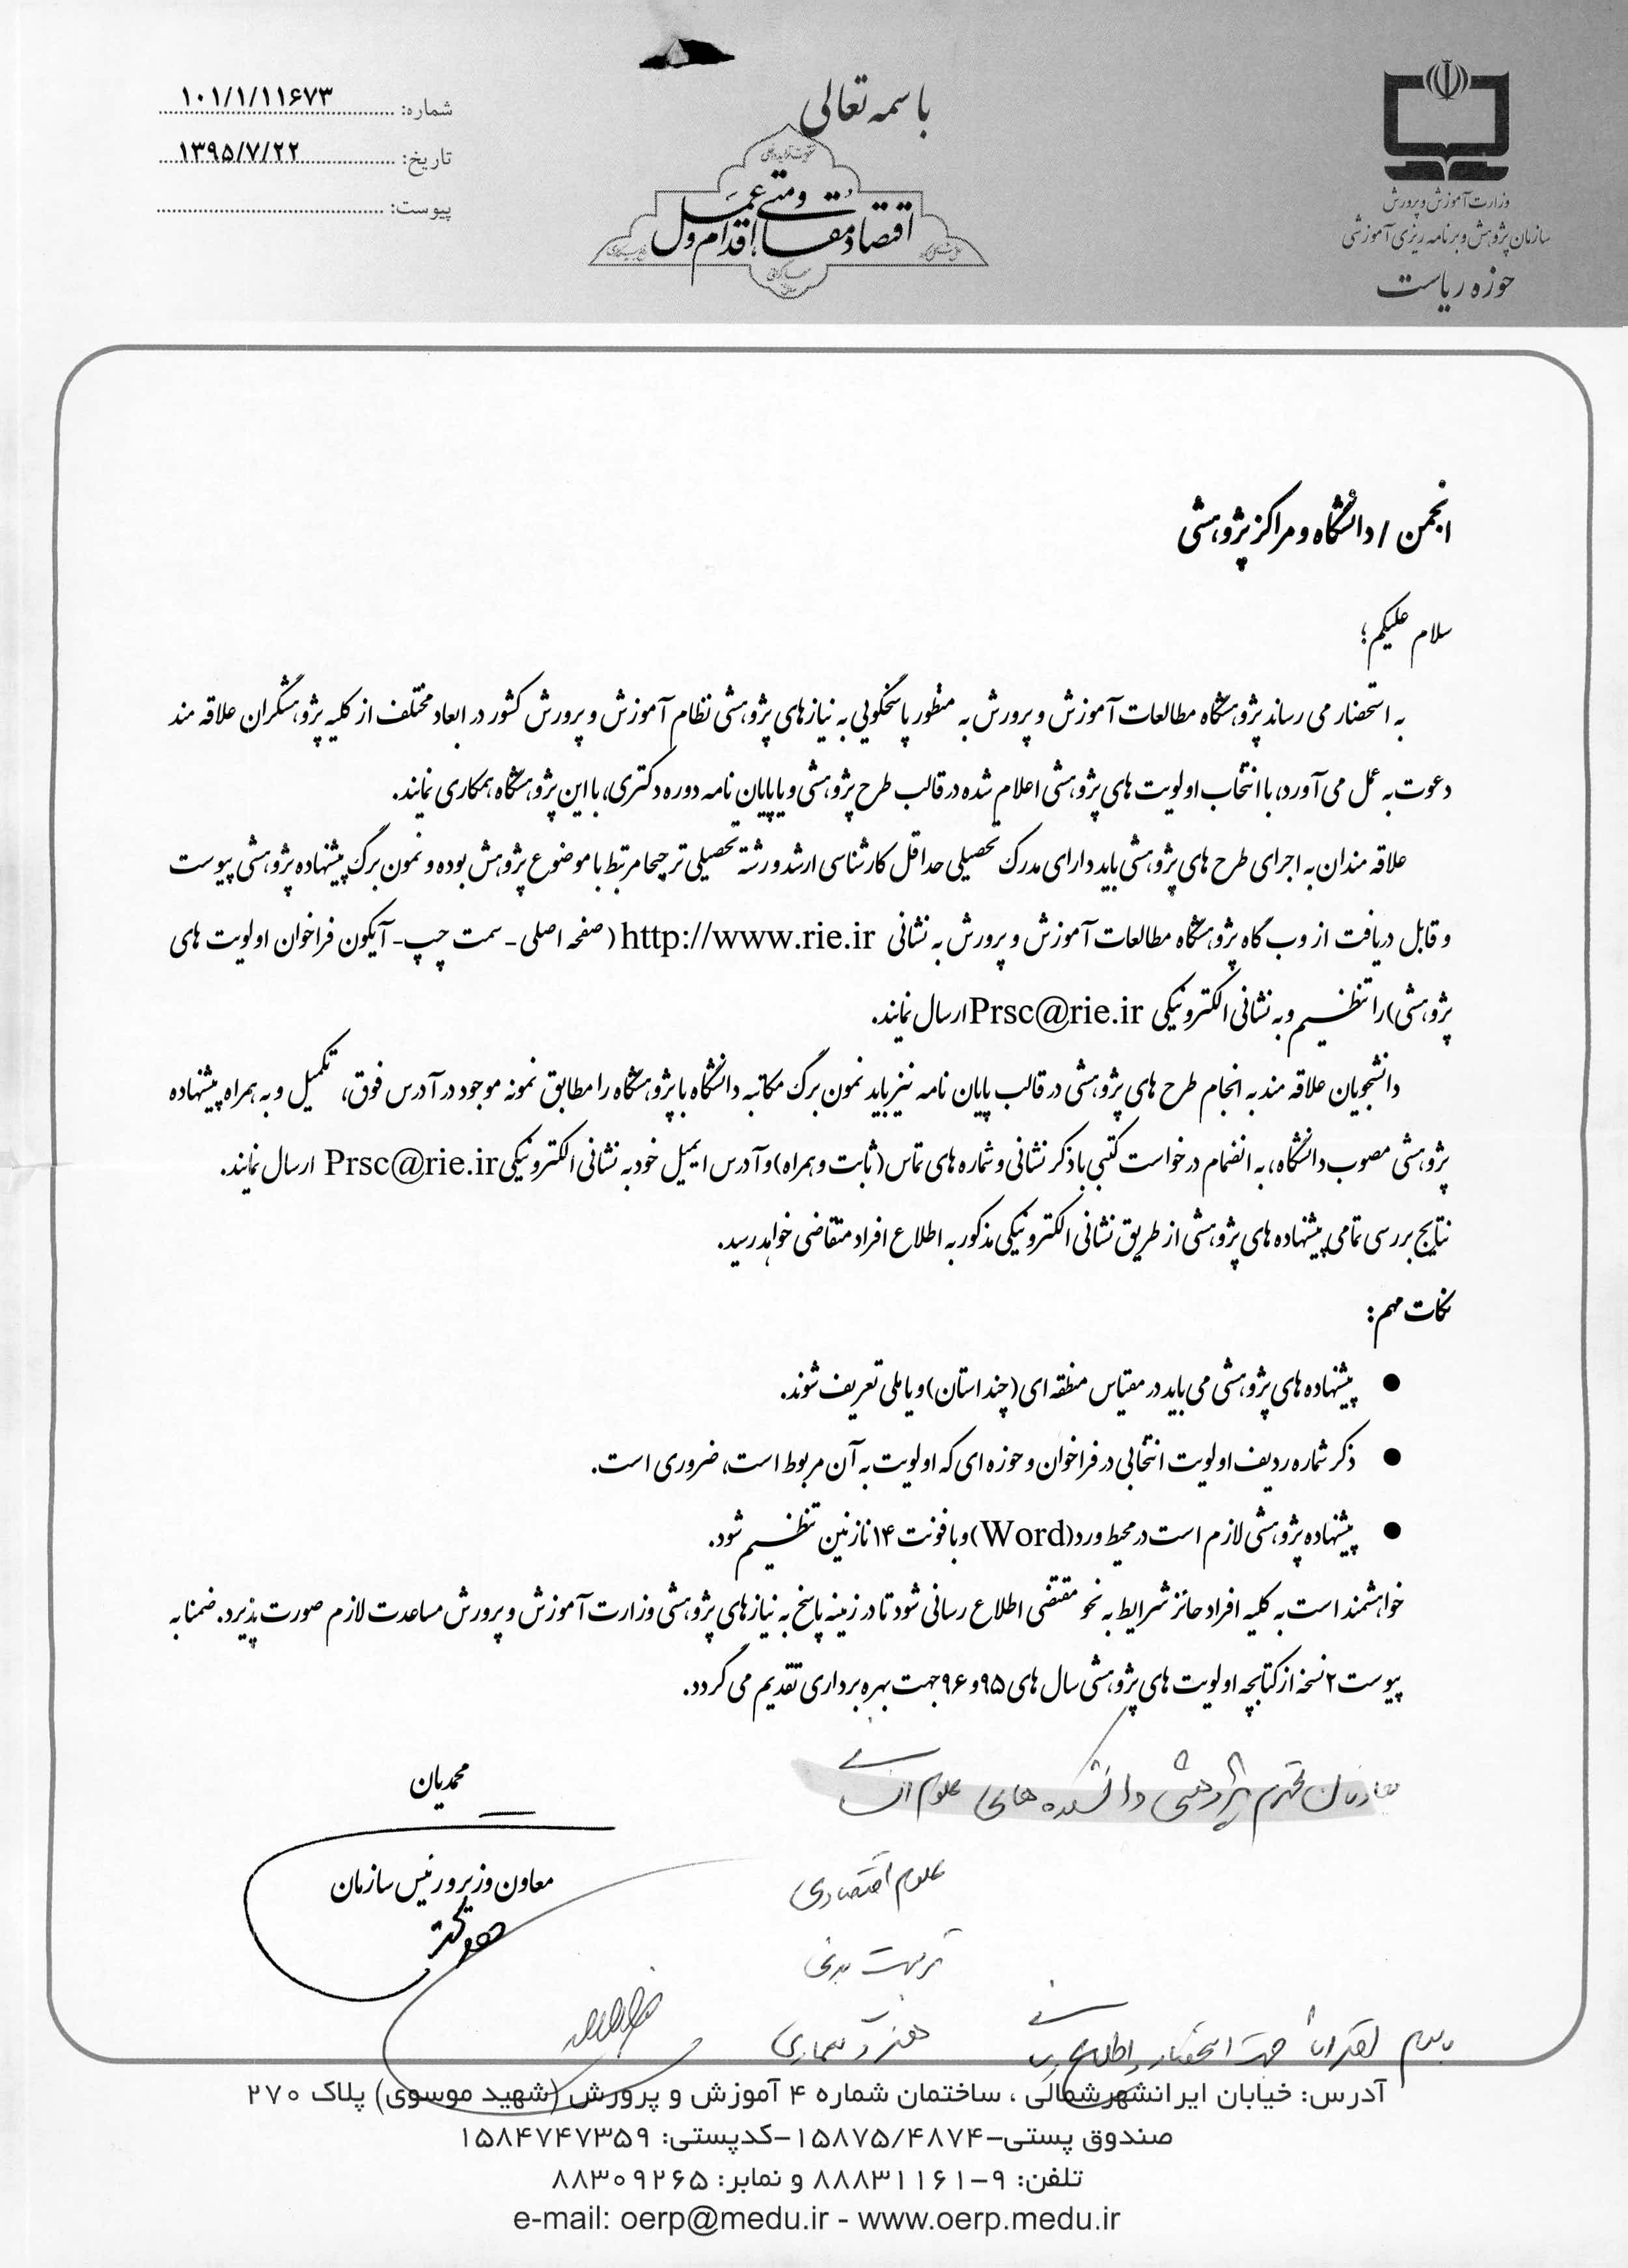 باسمه تعالی
اقتصاد مقاومتی، اقدام و عمل
وزارت آموزش و پرورش
سازمان پژوهش و برنامه ریزی آموزشی
حوزه ریاست
شماره: ۱۰۱/۱/۱۱۶۷۳
تاریخ: ۱۳۹۵/۷/۲۲
پیوست:
انجمن / دانشگاه و مراکز پژوهشی
سلام علیکم؛
به استحضار می رساند پژوهشگاه مطالعات آموزش و پرورش به منظور پاسخگویی به نیازهای پژوهشی نظام آموزش و پرورش کشور در ابعاد مختلف از کلیه پژوهشگران علاقه مند
دعوت به عمل می آورد، با انتخاب اولویت های پژوهشی اعلام شده در قالب طرح پژوهشی و یا پایان نامه دوره دکتری، با این پژوهشگاه همکاری نمایند.
علاقه مندان به اجرای طرح های پژوهشی باید دارای مدرک تحصیلی حداقل کارشناسی ارشد و رشته تحصیلی ترجیحا مرتبط با موضوع پژوهش بوده و نمون برگ پیشنهاده پژوهشی پیوست
و قابل دریافت از وب گاه پژوهشگاه مطالعات آموزش و پرورش به نشانی http://www.rie.ir (صفحه اصلی - سمت چپ - آیکون فراخوان اولویت های
پژوهشی) را تنظیم و به نشانی الکترونیکی Prsc@rie.ir ارسال نمایند.
دانشجویان علاقه مند به انجام طرح های پژوهشی در قالب پایان نامه نیز باید نمون برگ مکاتبه دانشگاه با پژوهشگاه را مطابق نمونه موجود در آدرس فوق، تکمیل و به همراه پیشنهاده
پژوهشی مصوب دانشگاه، به انضمام درخواست کتبی با ذکر نشانی و شماره های تماس (ثابت و همراه) و آدرس ایمیل خود به نشانی الکترونیکی Prsc@rie.ir ارسال نمایند.
نتایج بررسی تمامی پیشنهاده های پژوهشی از طریق نشانی الکترونیکی مذکور به اطلاع افراد متقاضی خواهد رسید.
نکات مهم:
● پیشنهاده های پژوهشی می باید در مقیاس منطقه ای (چند استان) و یا ملی تعریف شوند.
● ذکر شماره ردیف اولویت انتخابی در فراخوان و حوزه ای که اولویت به آن مربوط است، ضروری است.
● پیشنهاده پژوهشی لازم است در محیط ورد (Word) و با فونت ۱۴ نازنین تنظیم شود.
خواهشمند است به کلیه افراد حائز شرایط به نحو مقتضی اطلاع رسانی شود تا در زمینه پاسخ به نیازهای پژوهشی وزارت آموزش و پرورش مساعدت لازم صورت پذیرد. ضمنا به
پیوست ۲ نسخه از کتابچه اولویت های پژوهشی سال های ۹۵ و ۹۶ جهت بهره برداری تقدیم می گردد.
محمدیان
معاون وزیر و رئیس سازمان
معاونان محترم پژوهشی دانشکده های علوم انسانی
علوم اقتصادی
تربیت بدنی
هنر و معماری
با سلام احتراماً جهت استحضار و اطلاع رسانی
آدرس: خیابان ایرانشهر شمالی ، ساختمان شماره ۴ آموزش و پرورش (شهید موسوی) پلاک ۲۷۰
صندوق پستی-۱۵۸۷۵/۴۸۷۴-کدپستی: ۱۵۸۴۷۴۷۳۵۹
تلفن: ۹-۸۸۸۳۱۱۶۱ و نمابر: ۸۸۳۰۹۲۶۵
e-mail: oerp@medu.ir - www.oerp.medu.ir